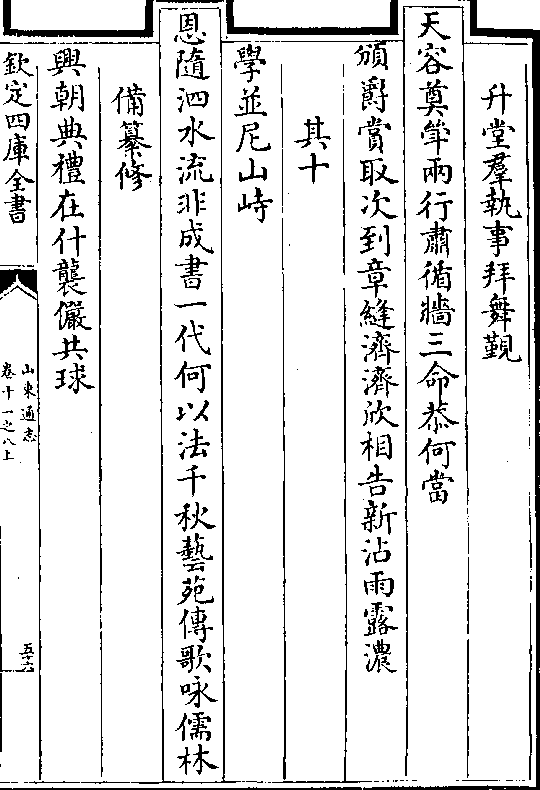 升堂羣執事拜舞覲
天容奠斝兩行肅循牆三命恭何當
頒爵賞取次到章縫濟濟欣相告新沾雨露濃
其十
學並尼山峙
恩隨泗水流非成書一代何以法千秋藝苑傳歌咏儒林
備纂修
興朝典禮在什襲儼共球
欽定四庫全書
山東通志
卷十一之八上
五十六